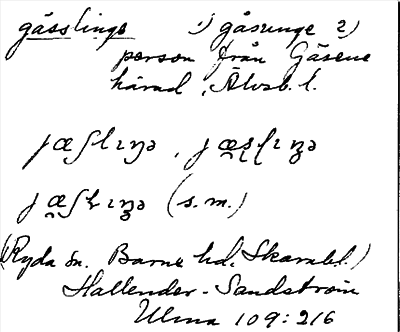 gässlinge 1) gåsunge 2)
person från Gäsene
härad, Älvsb. l.
jæʃlɪŋə, jæ̯ʂɭɪŋə
jæ̯ʃlɪŋə (s. m.)
(Ryda sn. Barne hd. Skarabl.)
Hallender-Sandström
Ulma 109:216